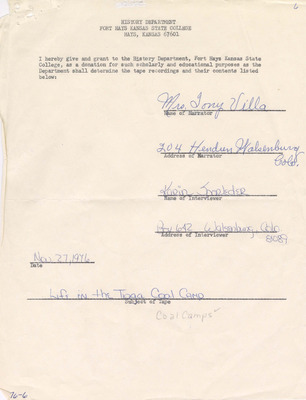 6
HISTORY DEPARTMENT
FORT HAYS KANSAS STATE COLLEGE
HAYS, KANSAS 67601
I hereby give and grant to the History Department, Fort Hays Kansas State
College, as a donation for such scholarly and educational purposes as the
Department shall determine the tape recordings and their contents listed
below:
Mrs. Tony Villa
Name of Narrator
204 Hendren Walsenburg
Colo.
Address of Narrator
Name of Interviewer
Box 642 Walsenburg, Colo.
81089
Address of Interviewer
Nov. 27, 1976
Date
Life in the Tioga Coal Camp
Subject of Tape
Coal Camps
76-6